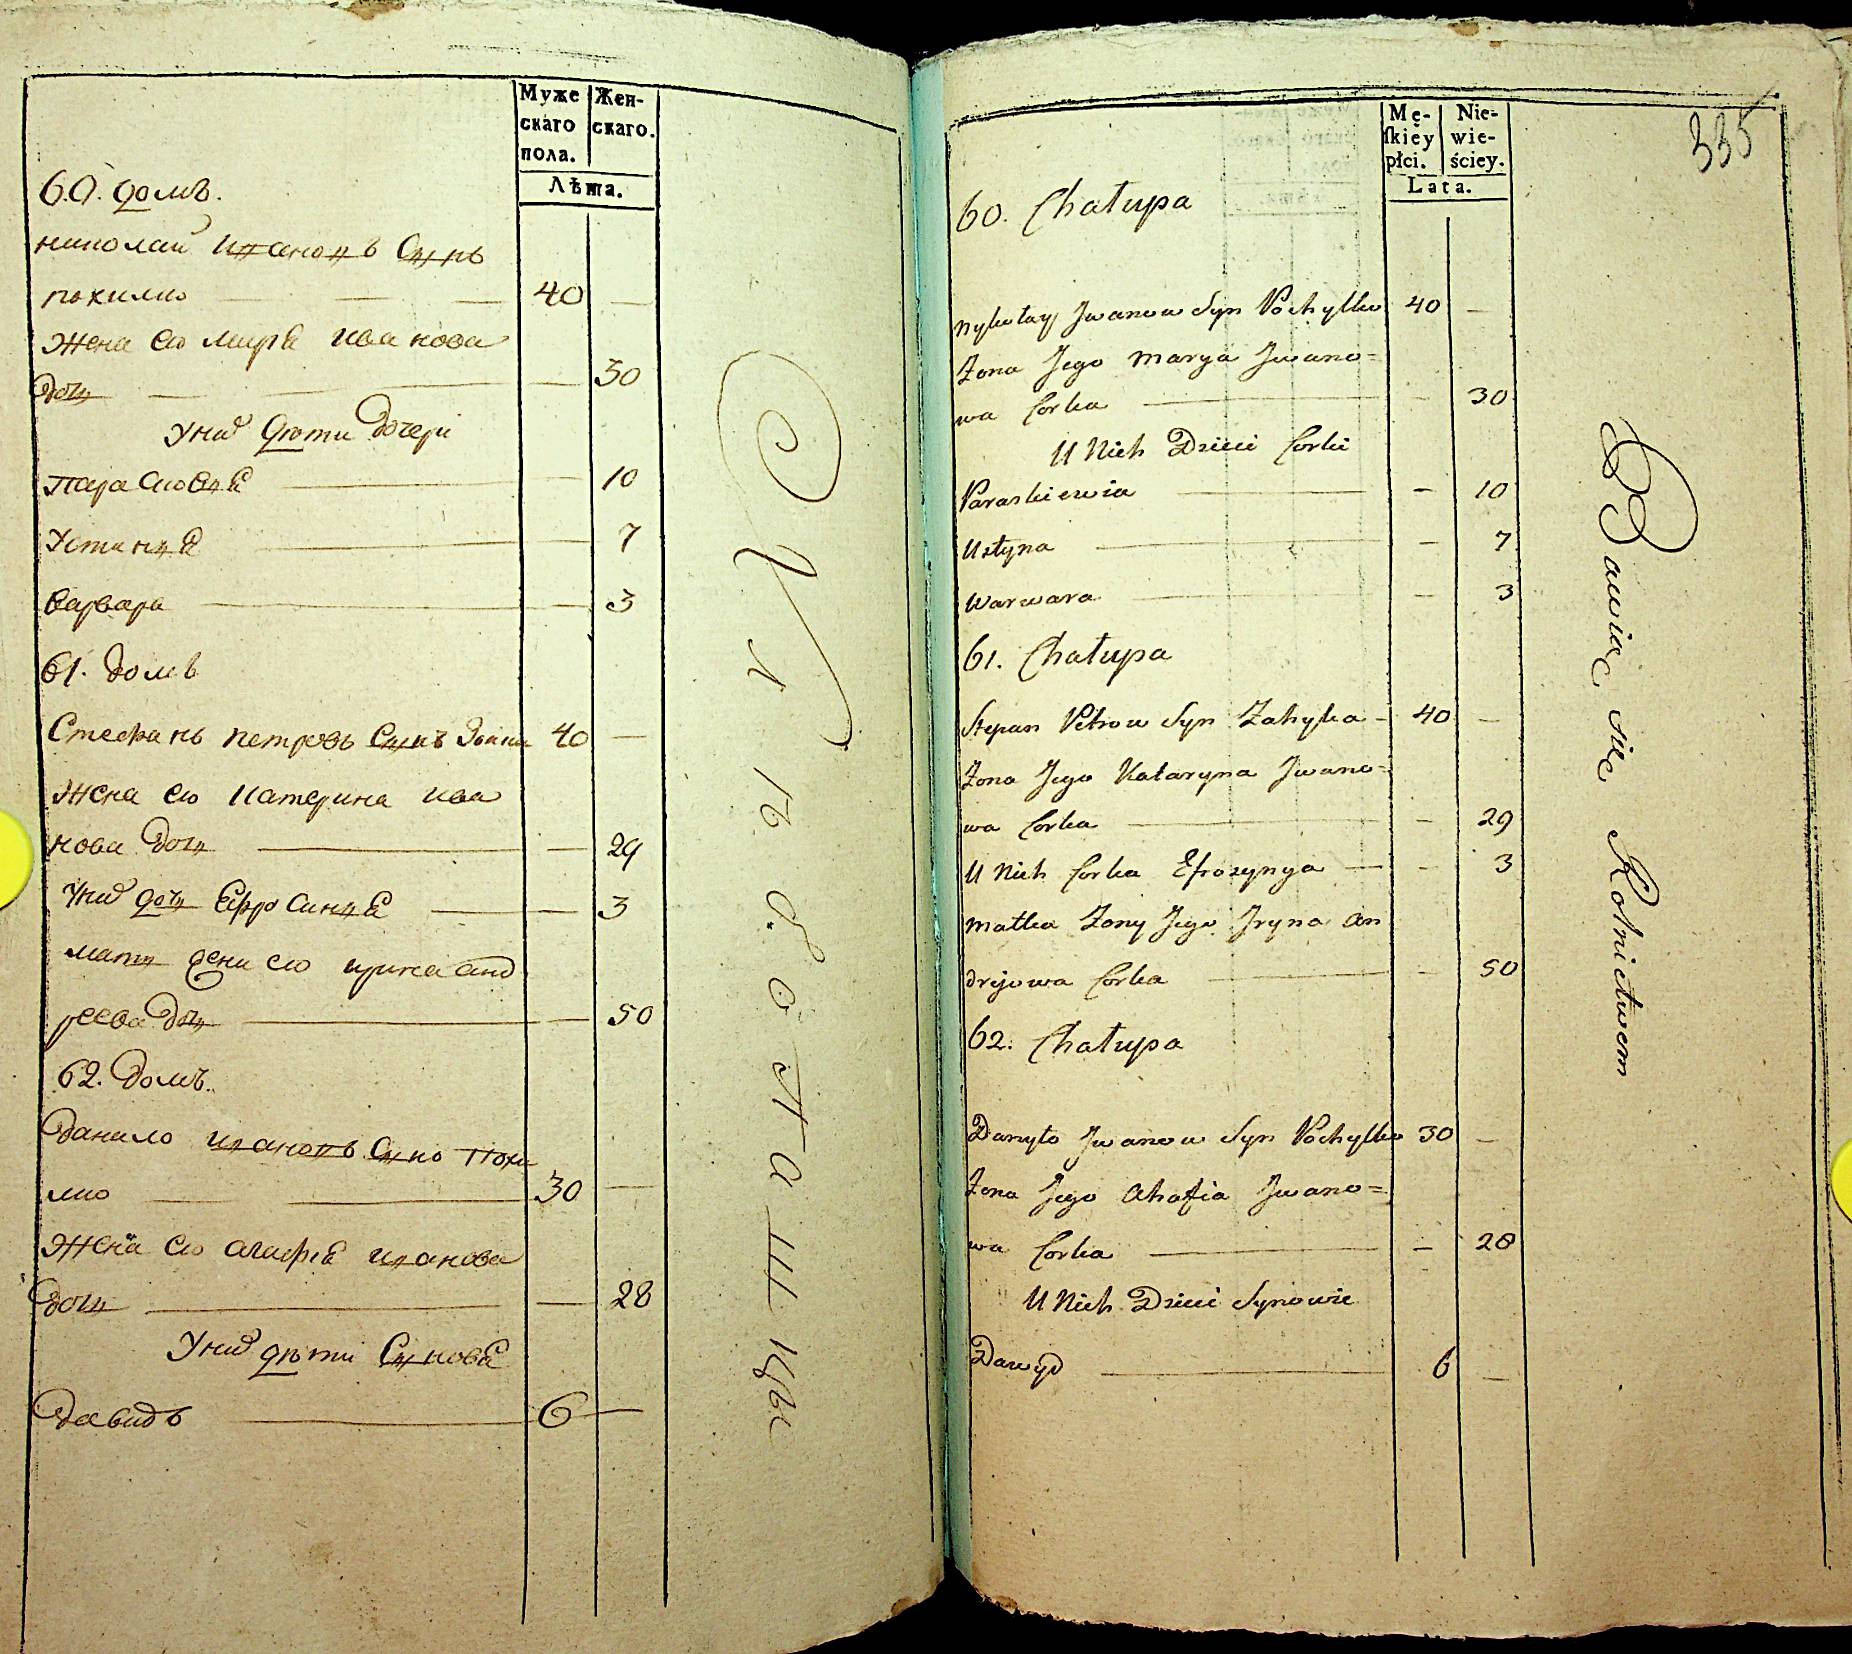 Муже
скаго
пола.
Жен-
скаго.
Лѣта.
60. домъ.
николай ивановъ Сынъ
похилко 40 —
Жена его мария ивано­ва
дочь — 30
У них дѣти дочери
парасковия — 10
Устиния — 7
варвара — 3
61. домъ
Стефанъ петровъ Сынъ 40 —
жена его катерина ива
нова дочь — 29
У них дочь Ефросиния — 3
мать жены его ирина анд
реева дочь — 50
62. домъ.
данило ивановъ Сынъ похи
лко 30 —
Жена его агафия иванова
дочь — 28
У них дѣти Сыновя
давидъ 6 —
хлебопашцы
335
Mę-
ſkiéy
płci.
Nie-
wie-
ściey.
Lata.
60. Chałupa
Nykołay Jwanow Syn Pochylko 40 —
Żona Jego Marya Jwano=
wa Corka — 30
U Nich Dzieci Corki
Paraskiewia — 10
Ustyna — 7
Warwara — 3
61. Chałupa
Stepan Petrow Syn Zahyka 40 —
Żona Jego Kataryna Jwano=
wa Corka — 29
U Nich Corka Efrozynya — 3
Matka Żony Jego Jryna An
drijowa Corka — 50
62. Chałupa
Danyło Jwanow Syn Pochylko 30 —
Żona Jego Ahafia Jwano=
wa Corka — 28
U Nich Dzieci Synowie
Dawyd 6 —
Bawią się Rolnictwem